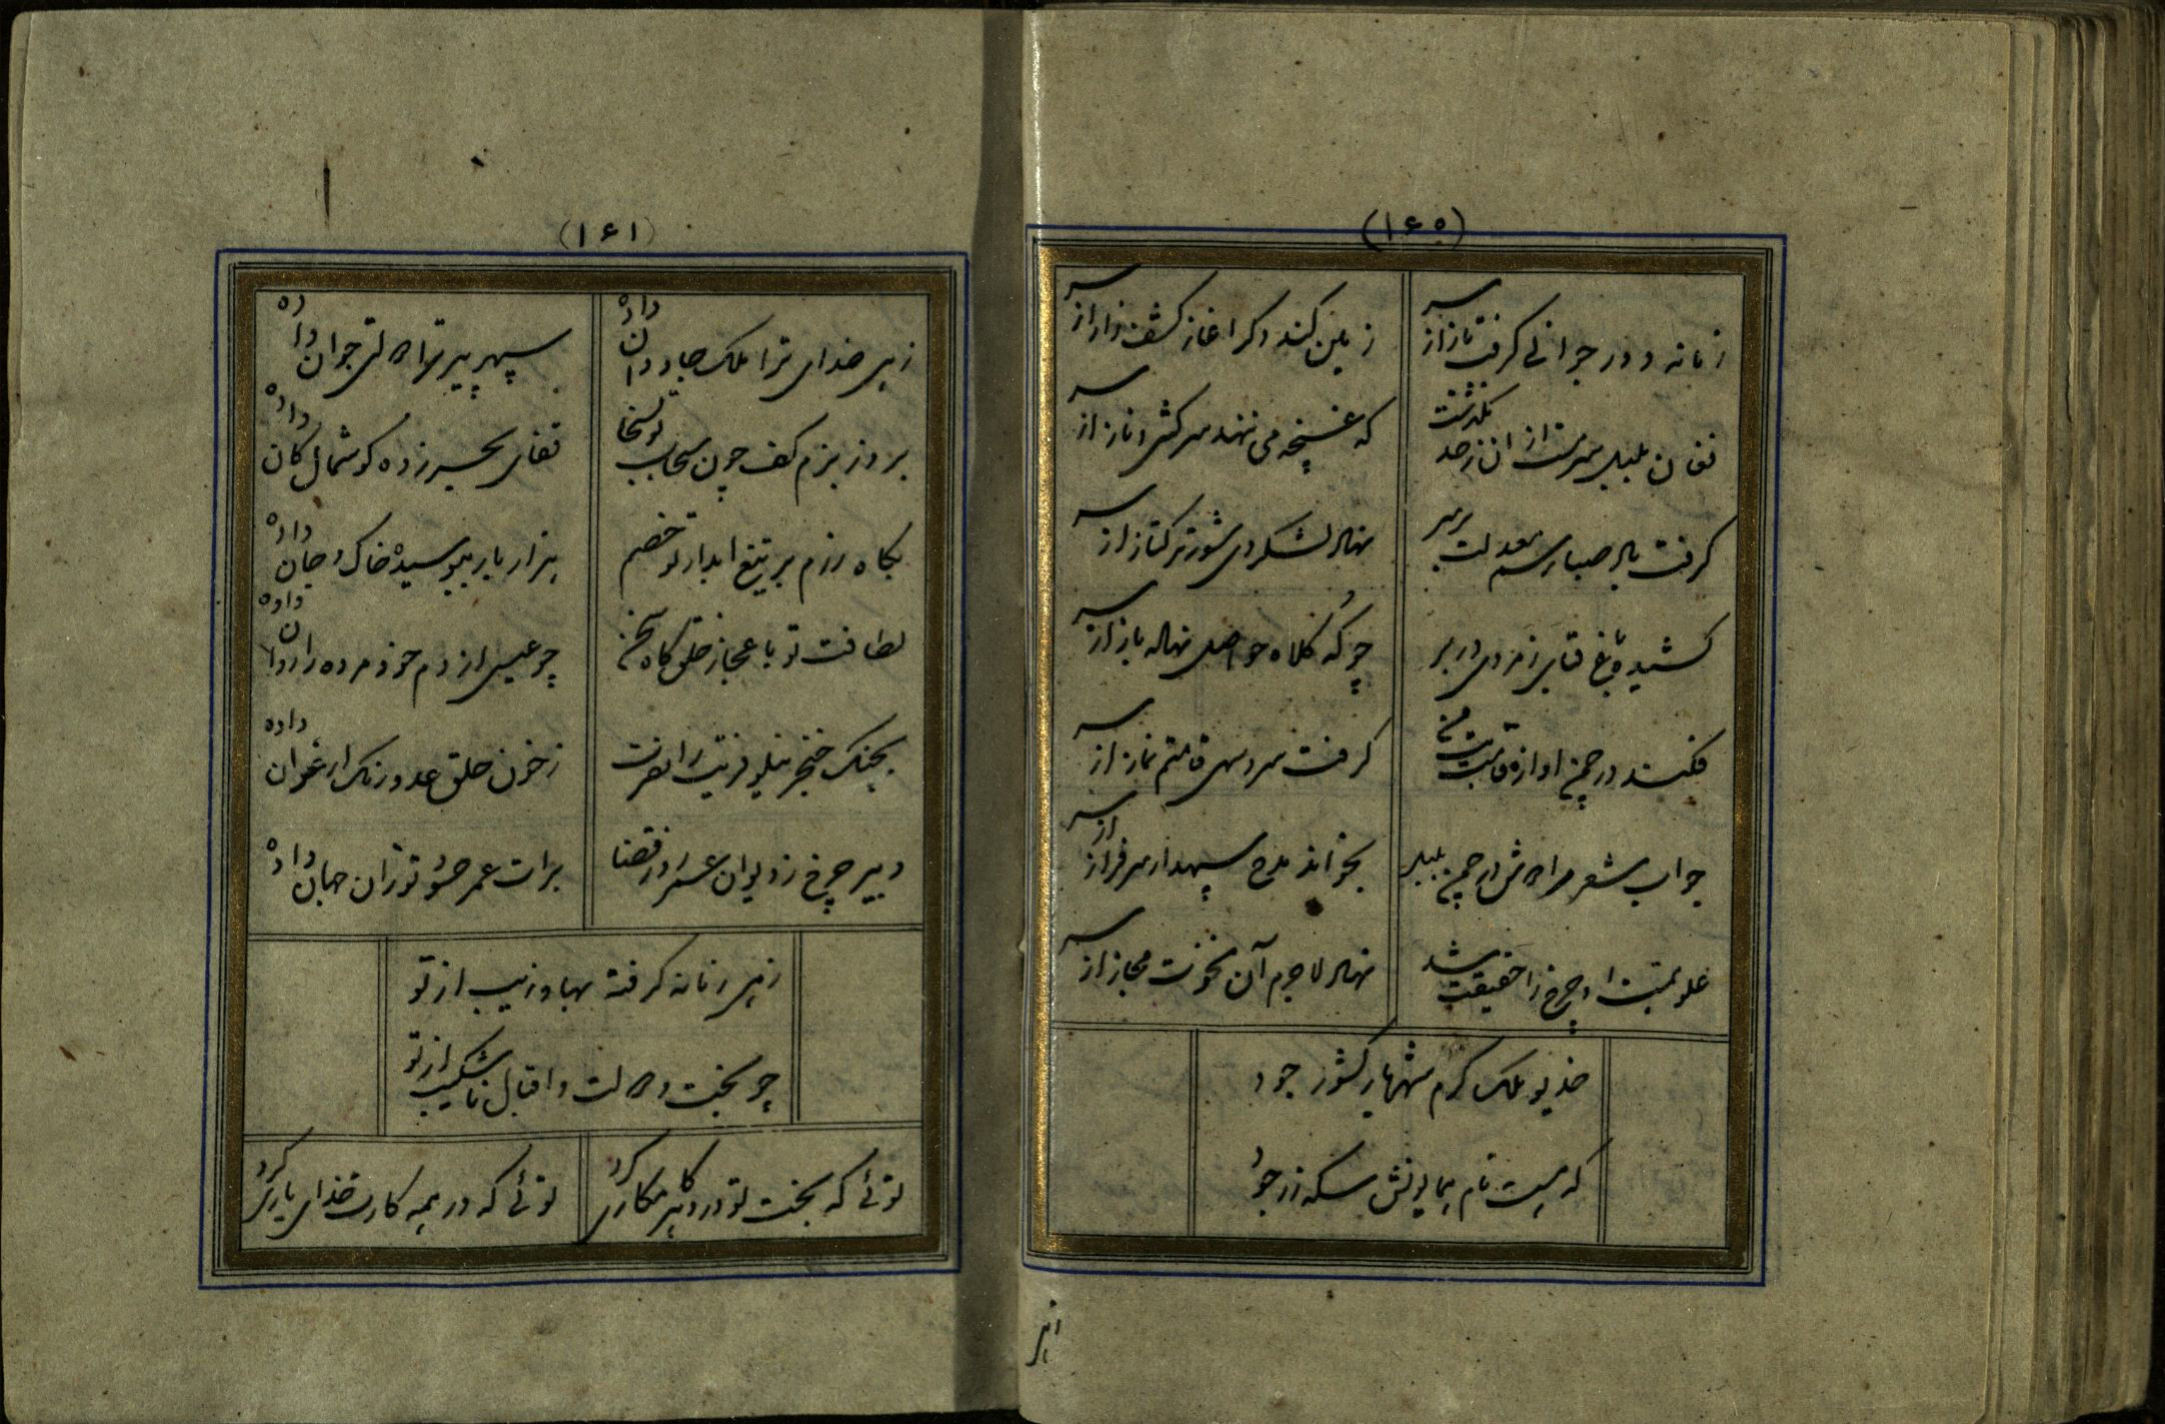 (۱۶۰)
زمانه دور جوانی گرفت باز از سر
زمین کند دگر اغاز کشف راز از سر
فغان بلبل سرمست ازان ز حد بگذشت
که غنچه می ننهد سرکشی و ناز از سر
گرفت باد صبا رسم معدلت بر سر
نهاد لشکر دی شور ترکتاز از سر
کشیده باغ قبای زمردی در بر
چو که کلاه حواصل نهاده باز از سر
فکند در چمن اوازه قامت
گرفت سرو سهی قامتم نماز از سر
جواب شعر مرا خوش در چمن بلبل
بخواند مدح سپهدار سرفراز از سر
علو همت او چرخ را حقیقت شد
نهاد لاجرم آن نخوت مجاز از سر
خدیو ملک کرم شهریار کشور جود
که هست نام همایونش سکه زر جود
زهی
(۱۶۱)
زهی خدای ترا ملک جاودان داده
سپهر پیر ترا دولت جوان داده
بروز بزم کف چون سحاب تو بسخا
قفای بحر زده گوشمال کان داده
بگاه رزم بر تیغ ابدار تو خصم
هزار بار ببوسیده خاک و جان داده
لطافت تو باعجاز خلق گاه سخن
چو عیسی از دم خود مرده را روان داده
بجنگ خنجر نیلوفریت را نصرت
ز خون حلق عدو رنگ ارغوان داده
دبیر چرخ ز دیوان عسر در قضا
برات عمر حسود تو زان جهان داده
زهی زمانه گرفته بها و زیب از تو
چو بخت و دولت و اقبال ناشکیب از تو
توئی که بخت تو در دهر کامکاری کرد
توئی که در همه کارت خدای یاری کرد